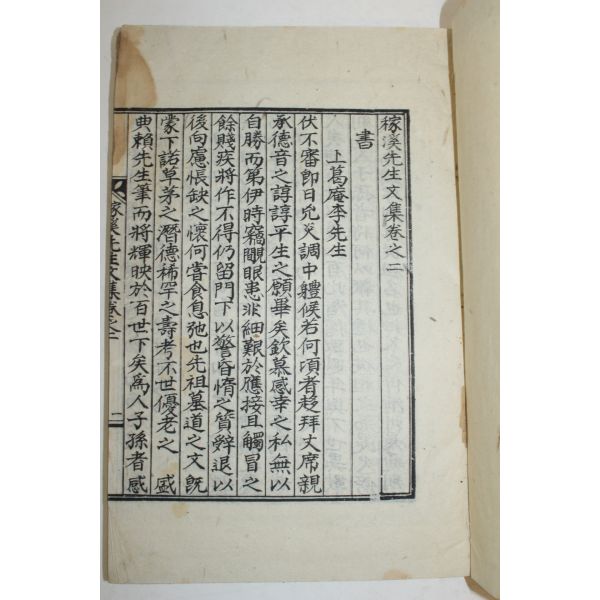 稼溪先生文集卷之二
書
上葛庵李先生
伏不審卽日兇災調中軆候若何頃者趍拜丈席親
承德音之諄諄平生之願畢矣欽慕感幸之私無以
自勝而第伊時竊覸眼患非細艱於應接且觸冒之
餘賤疾將作不得仍留門下以警昏惰之質辭退以
後向慮悵缺之懷何嘗食息弛也先祖墓道之文旣
蒙下諾草茅之潛德稀罕之壽考不世優老之 盛
典賴先生筆而將輝映於百世下矣爲人子孫者感
稼溪先生文集卷之二 一